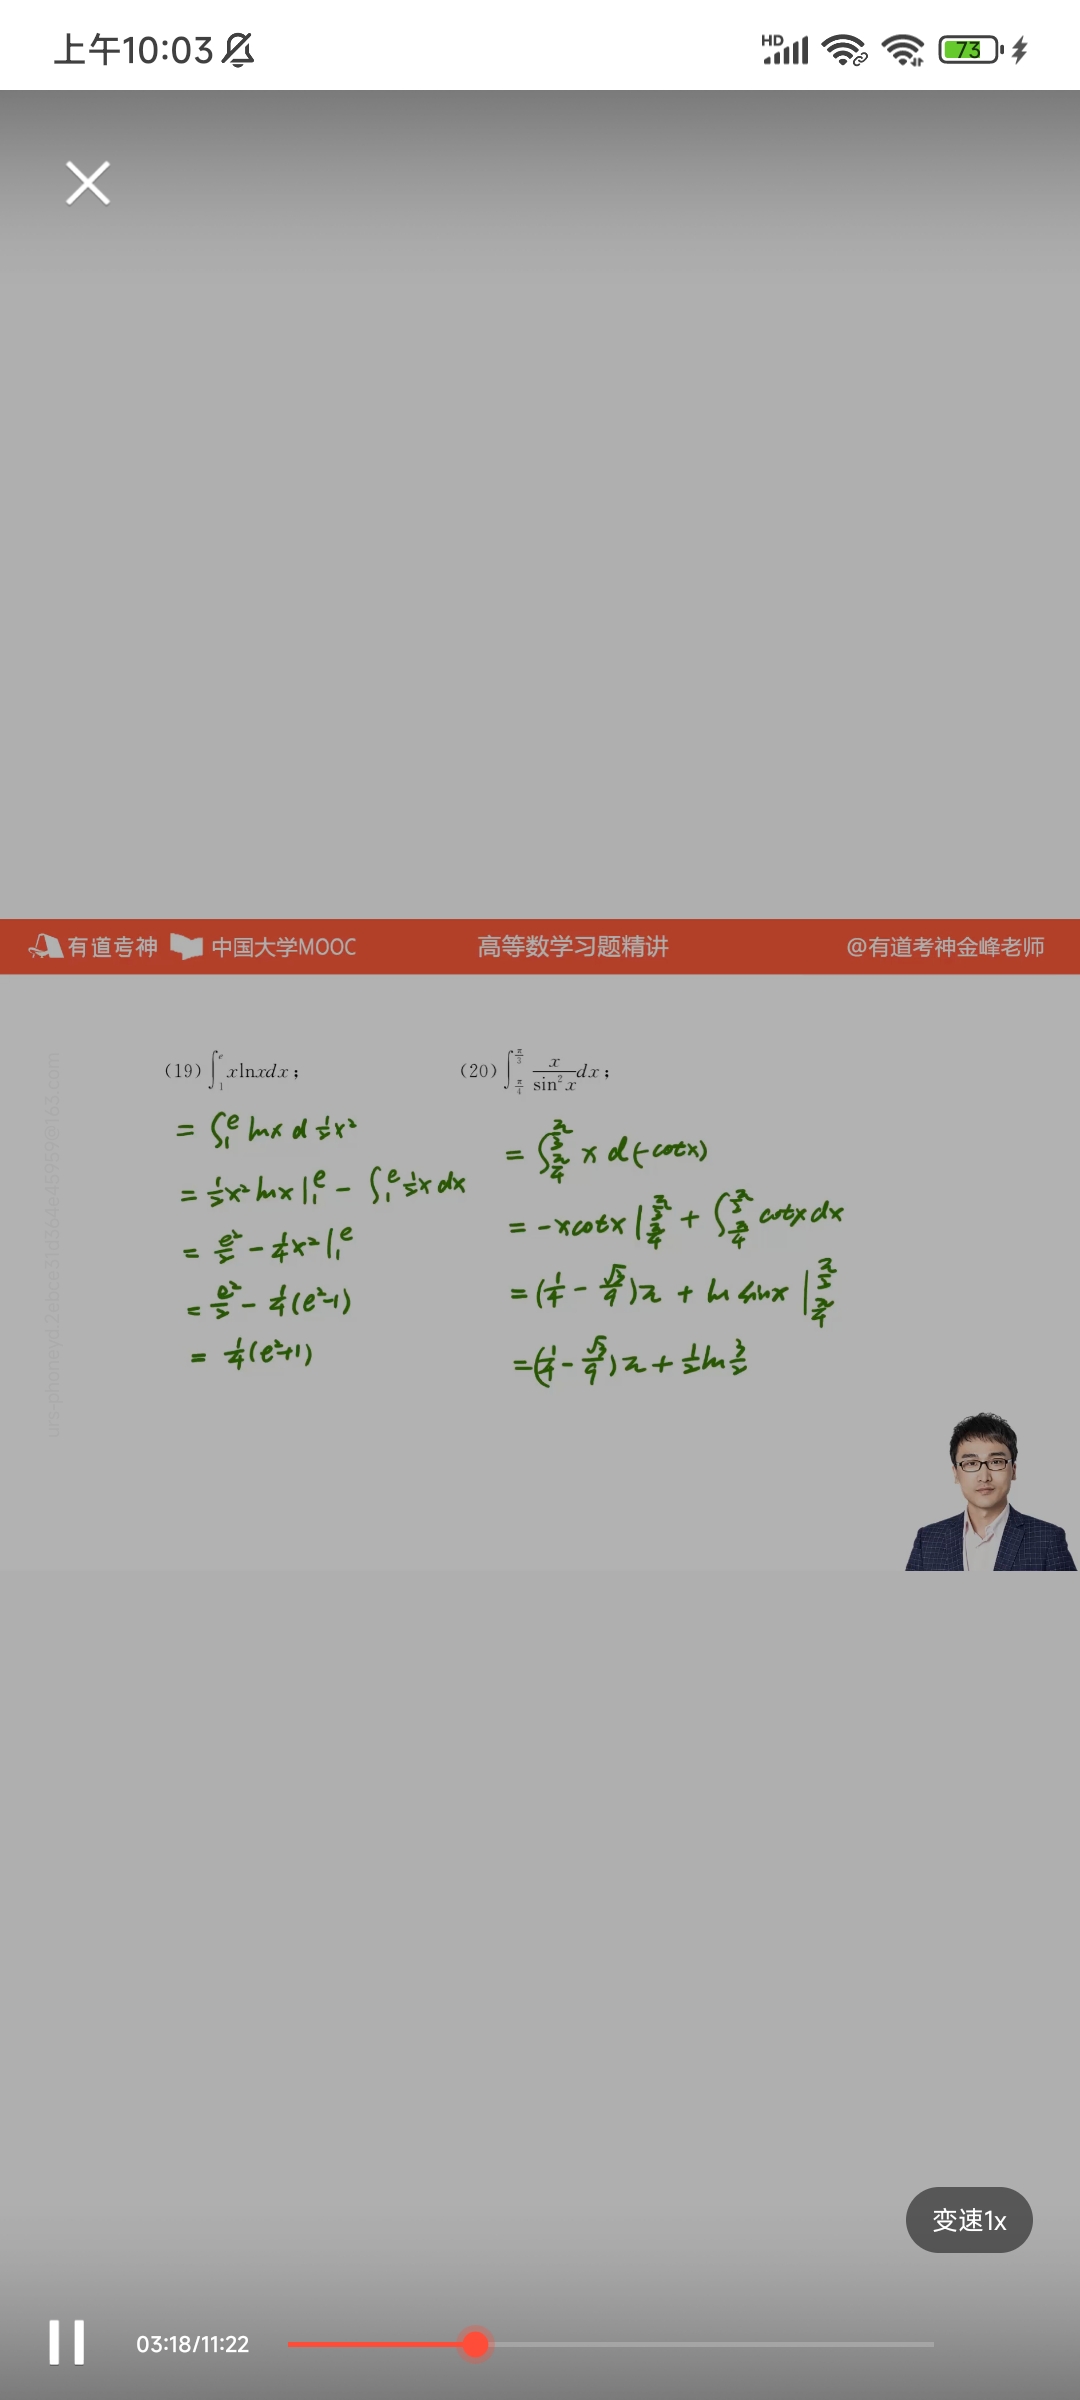 上午10:03
HD
73
有道考神 中国大学MOOC 高等数学习题精讲 @有道考神金峰老师
(19) ∫₁ᵉ xlnxdx; (20) ∫_{π/4}^{π/3} x/sin²x dx;
= ∫₁ᵉ lnx d ½x²
= ½x² lnx |₁ᵉ - ∫₁ᵉ ½x dx
= e²/2 - ¼x² |₁ᵉ
= e²/2 - ¼(e²-1)
= ¼(e²+1)
= ∫_{π/4}^{π/3} x d(-cotx)
= -xcotx |_{π/4}^{π/3} + ∫_{π/4}^{π/3} cotx dx
= (¼ - √3/9)π + ln sinx |_{π/4}^{π/3}
= (¼ - √3/9)π + ½ln 3/2
变速1x
03:18/11:22